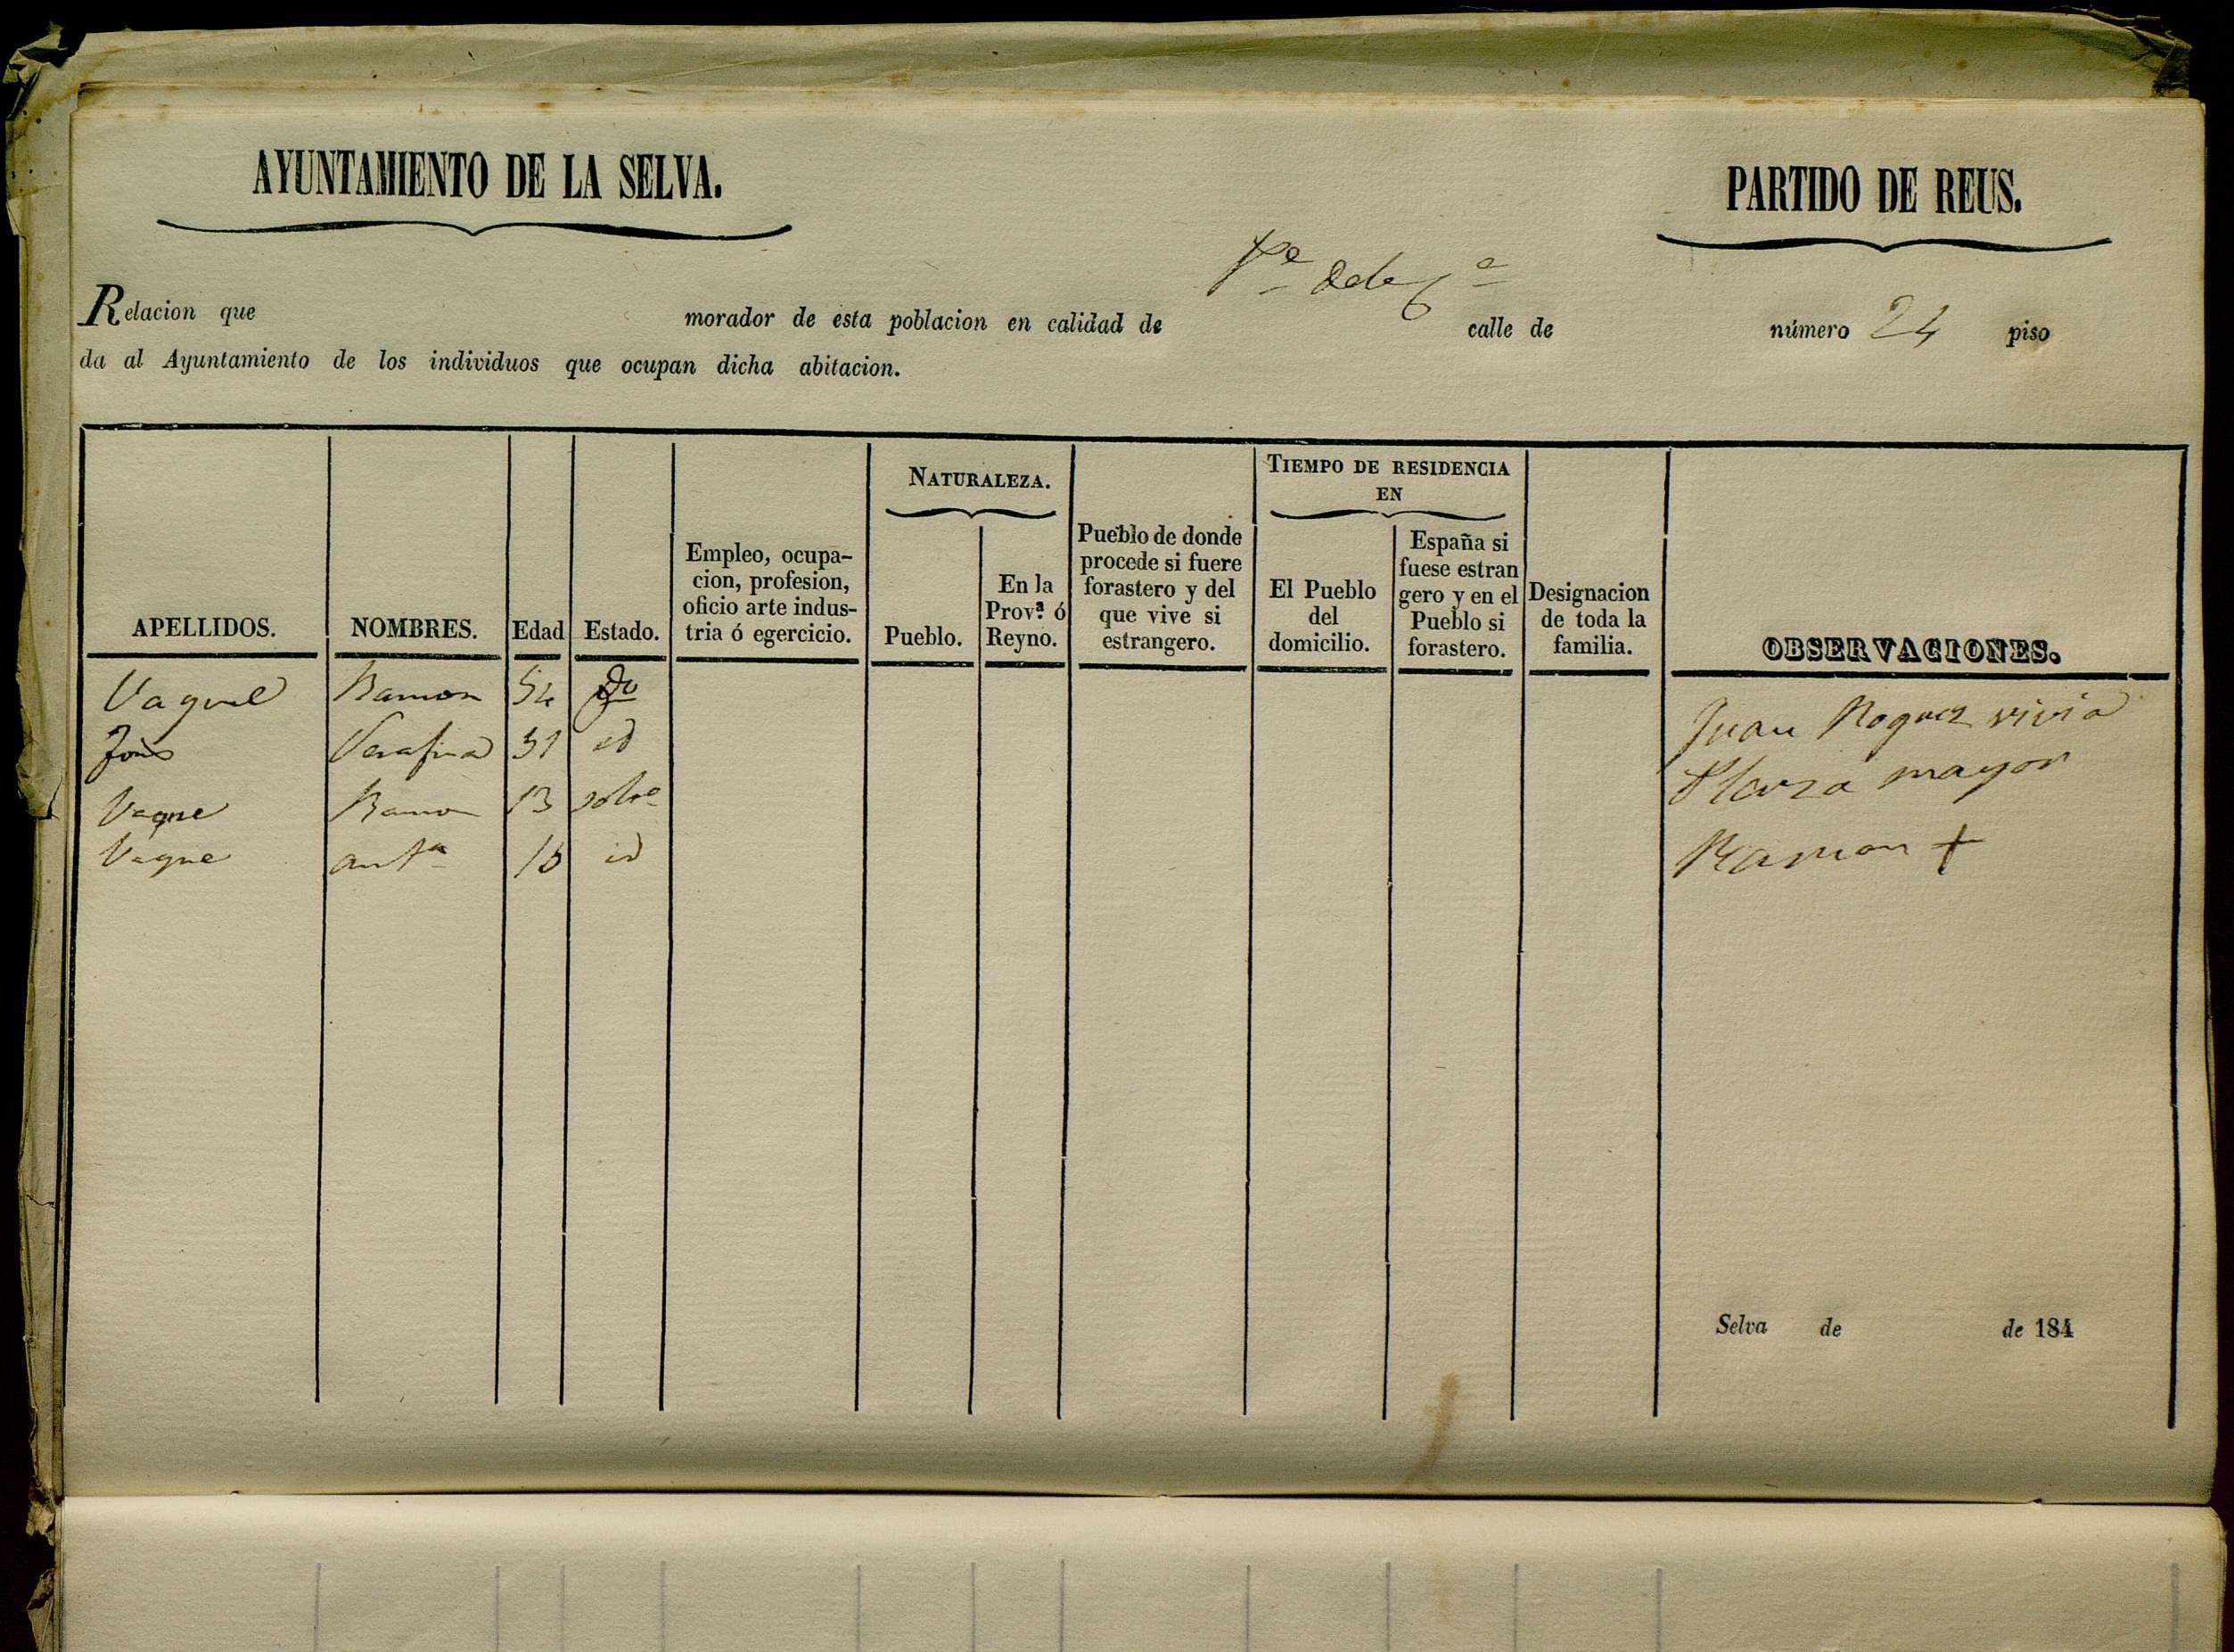 AYUNTAMIENTO DE LA SELVA.
PARTIDO DE REUS.
Relacion que morador de esta poblacion en calidad de calle de número 24 piso
da al Ayuntamiento de los individuos que ocupan dicha abitacion.
APELLIDOS. NOMBRES. Edad Estado. Empleo, ocupa-
cion, profesion,
oficio arte indus-
tria ó egercicio.
NATURALEZA.
Pueblo. En la
Provª. ó
Reyno.
Pueblo de donde
procede si fuere
forastero y del
que vive si
estrangero.
TIEMPO DE RESIDENCIA
EN
El Pueblo
del
domicilio.
España si
fuese estran
gero y en el
Pueblo si
forastero.
Designacion
de toda la
familia.
OBSERVACIONES.
Vaque Ramon 54
Serafina 51 id
Vaque Ramon 13
Vaque antª id
Juan Roguez vivia
Plaza mayor
Ramon +
Selva de de 184